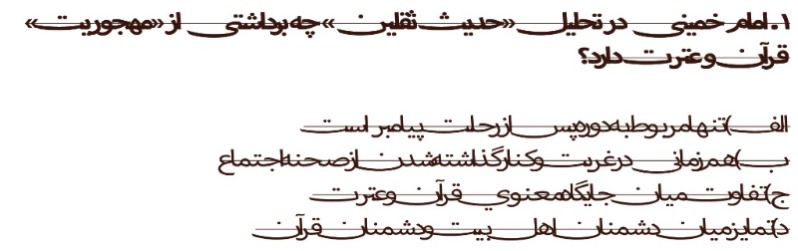 ۱. امام خمینی در تحلیل «حدیث ثقلین» چه برداشتی از «مهجوریت»
قرآن و عترت دارد؟
الف) تنها مربوط به دوره پس از رحلت پیامبر است
ب) همزمانی در غربت و کنار گذاشته شدن از صحنه اجتماع
ج) تفاوت میان جایگاه معنوی قرآن و عترت
د) تمایز میان دشمنان اهل بیت و دشمنان قرآن